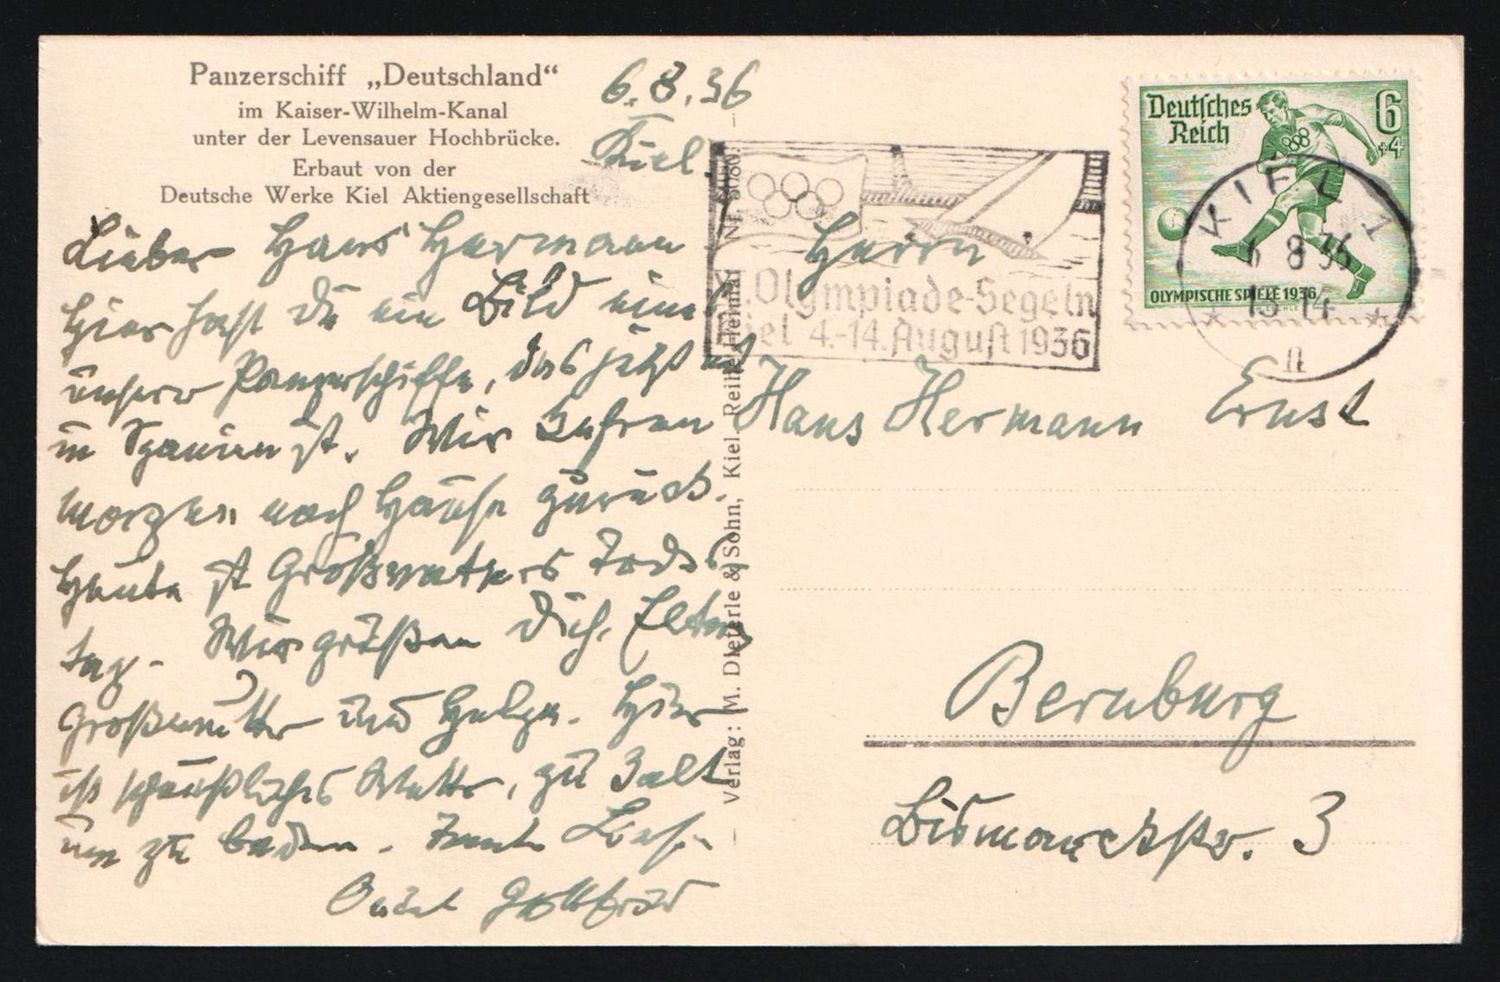 Panzerschiff „Deutschland“
im Kaiser-Wilhelm-Kanal
unter der Levensauer Hochbrücke.
Erbaut von der
Deutsche Werke Kiel Aktiengesellschaft
6.8.36
Kiel.
Lieber Hans Hermann
Hier hast Du ein Bild eines
unserer Panzerschiffe, das jetzt
in Spanien ist. Wir fahren
morgen nach Hause zurück.
Heute ist Großvaters Todes
tag. Wir grüßen Dich. Eltern
Großmutter und Helga. Hier
ist scheußliches Wetter, zu kalt
um zu baden. Tante
Onkel Gottfried
Verlag: M. Dieterle & Sohn, Kiel. Reihe Heimat Nr.
XI. Olympiade-Segeln
Kiel 4.-14. August 1936
Deutsches
Reich
6
+4
OLYMPISCHE SPIELE 1936
KIEL 1
6 8 36
13-14
n
Herrn
Hans Hermann Ernst
Bernburg
Bismarckstr. 3